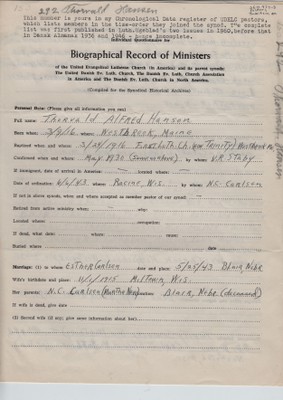 272 Thorvald Hansen
This number is yours in my Chronological Data register of UDELC pastors,
which lists members in the time-order they joined the synod.
list was first published in
in Dansk Almanak 1936 and 1946 - more incomplete.
Biographical Record of Ministers
of the United Evangelical Lutheran Church (in America) and its parent synods:
The United Danish Ev. Luth. Church, The Danish Ev. Luth. Church Association
in America and The Danish Ev. Luth. Church in North America.
(Compiled for the Synodical Historical Archives)
Personal Data: (Please give all information you can)
Full name: Thorvald Alfred Hansen
Born when: 3/9/16 where: Westbrook, Maine
Baptized when and where: 3/26/1916 Luth. Ch. (now Trinity) Westbrook Me
Confirmed when and where: May 1930 by whom: V.R. Staby
If immigrant, date of arrival in America: located where:
Date of ordination: 6/6/43 where: Racine, Wis. by whom: N.C. Carlsen
If not in above synods, when and where accepted as member pastor of our synod:
Retired from active ministry when: why:
Located where: occupation:
If dead, what date: where: cause:
Buried where date
Marriage: (1) to whom: Esther Carlsen date and place: 5/25/43 Blair, Nebr
Wife's birthdate and place: 1915 Milltown, Wis.
Her parents: N.C. Carlsen Blair, Nebr. (deceased)
If wife is dead, give date
(2) Record wife (if any; give same information about her)